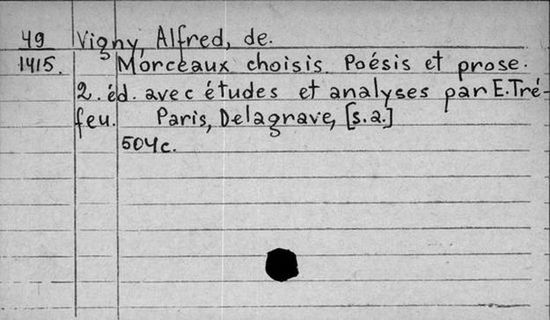 49 Vigny, Alfred, de.
1415. Morceaux choisis. Poésis et prose.
2. éd. avec études et analyses par E. Tré-
feu. Paris, Delagrave, [s.a.]
504c.